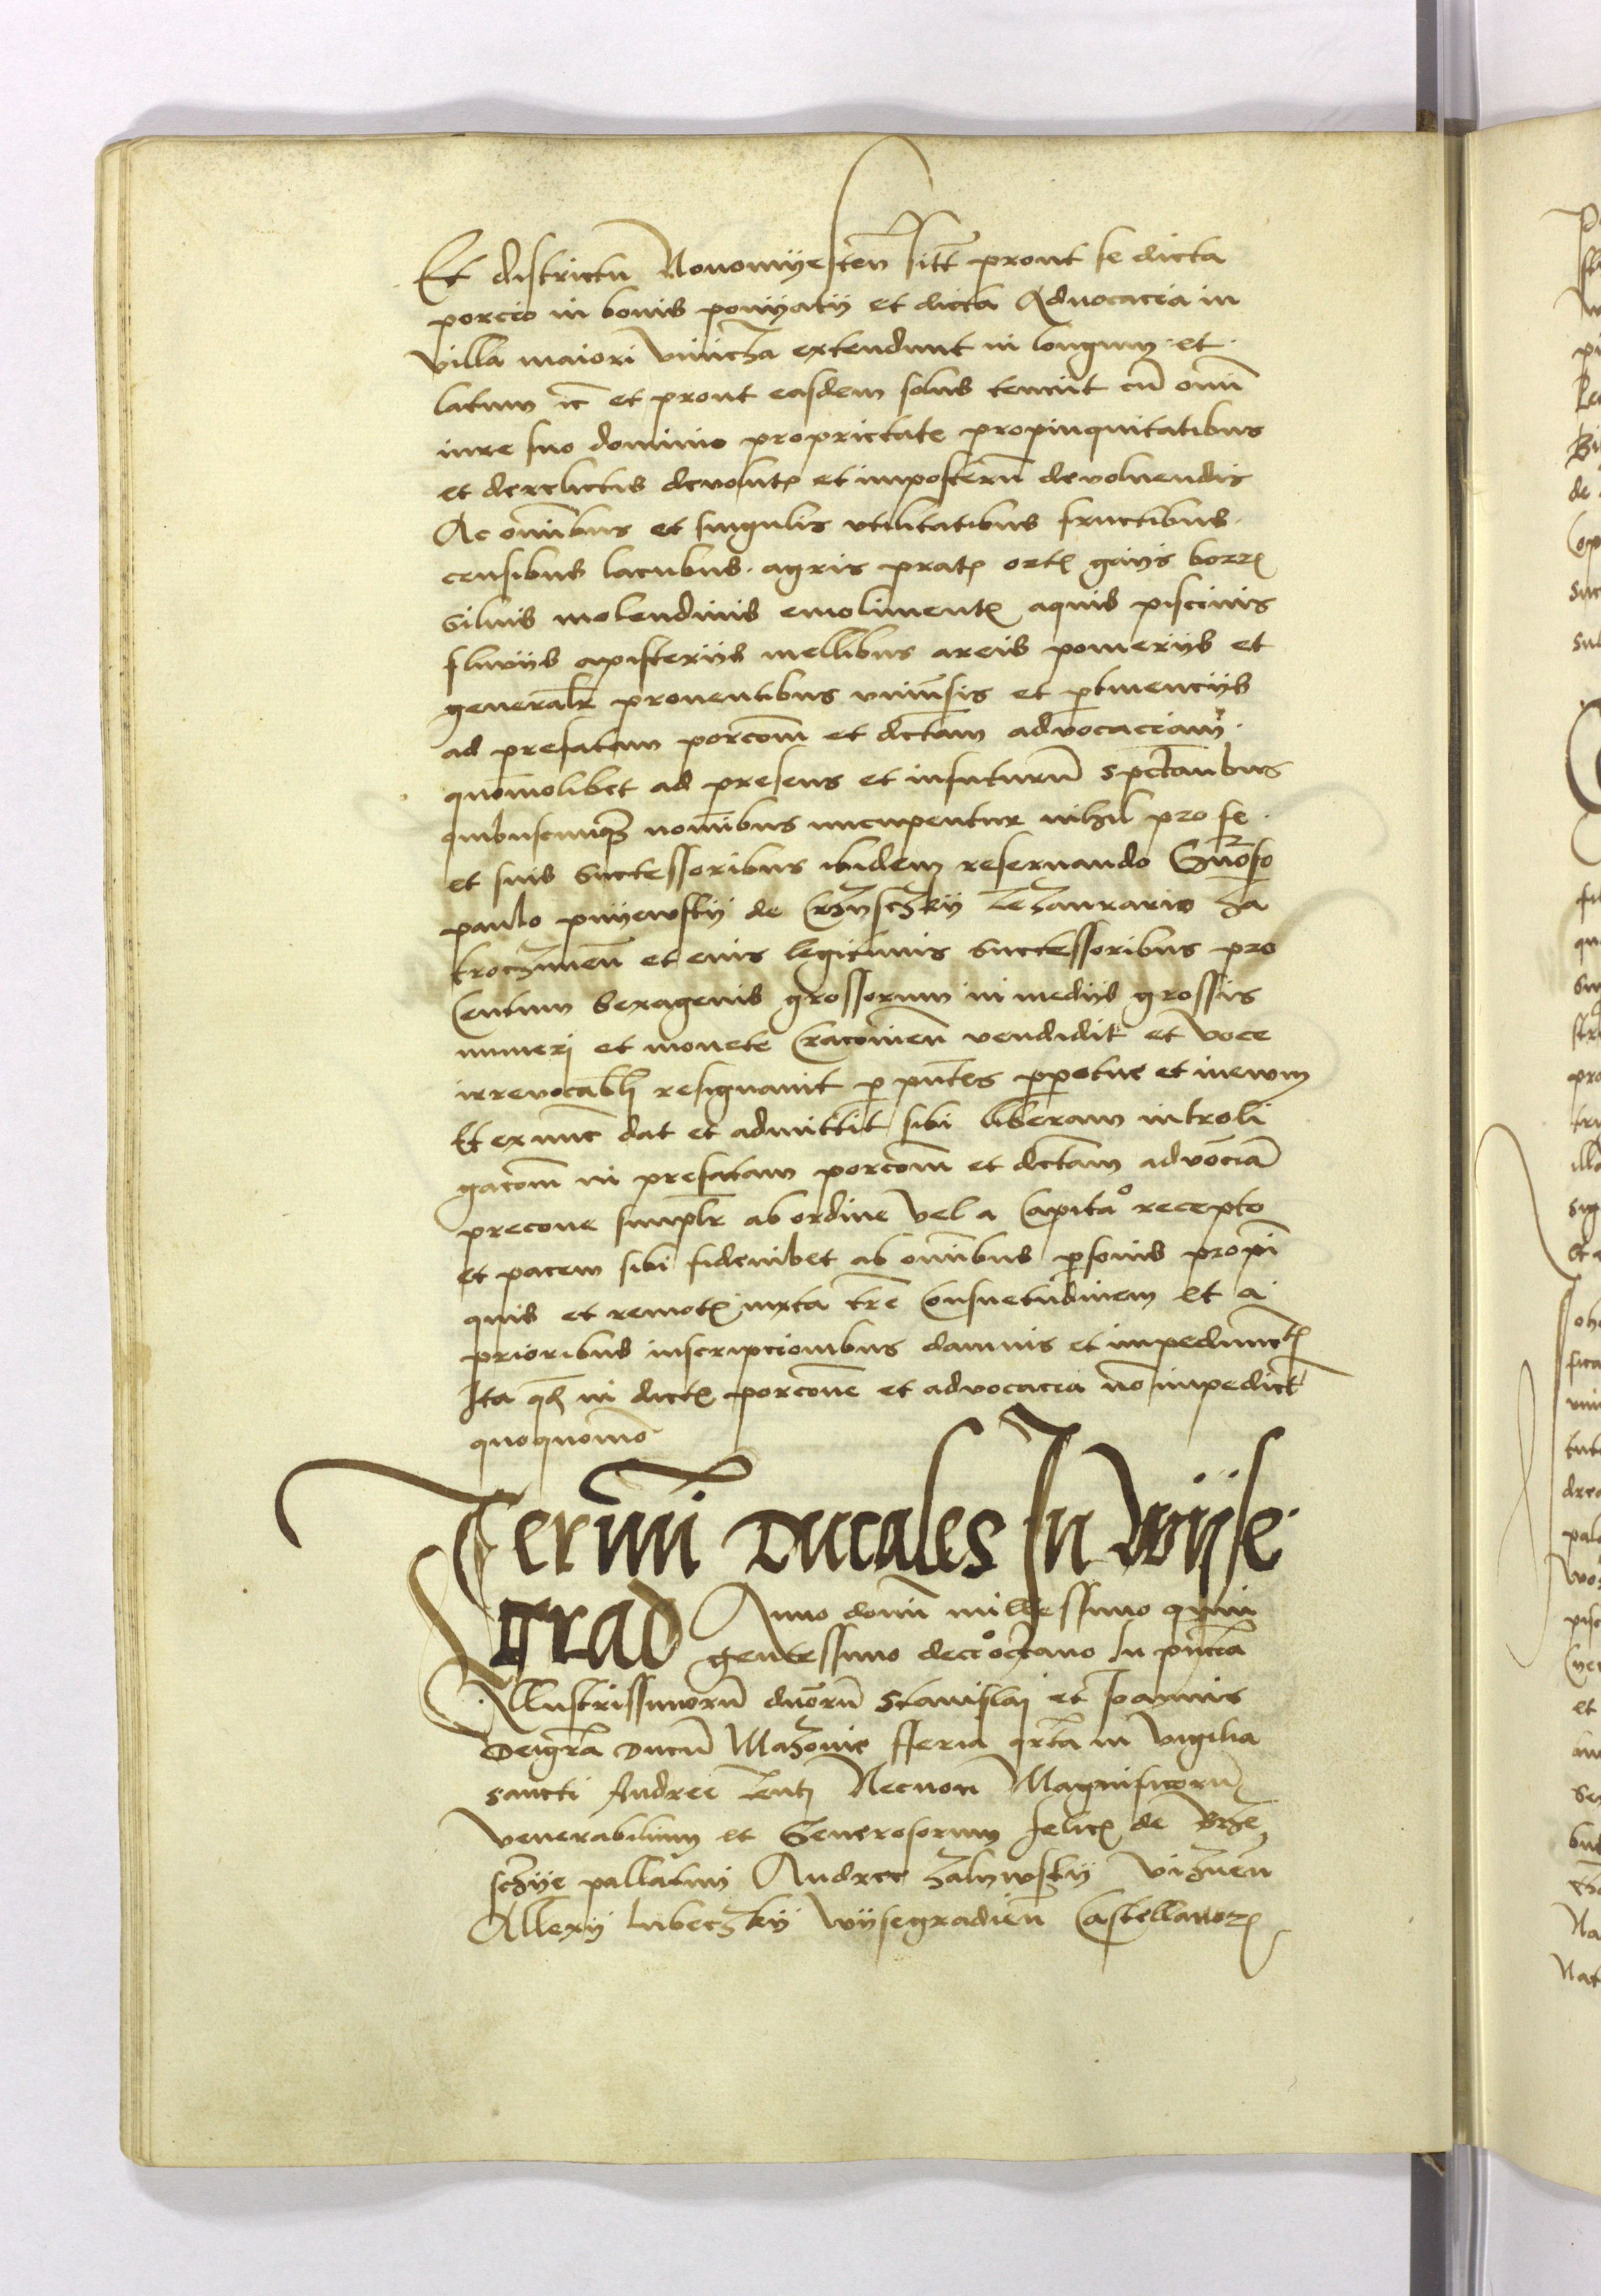 Et districtu Nouomiyesten sitt prout se dicta
porcio in bonis poniyatij et dicta Aduocacia in
villa maiori vinicza extendunt in longum et
latum ic et prout easdem solus tenuit cu omi
iure suo dominio proprietate propinquitatibus
et derelictis deuolut et imposteru deuoluendis
Ac omibus et singulis vtilitatibus fructibus
censibus lacubus agris prat ort gayis borr
siluis molendinis emoliment aquis piscinis
fluvijs apisterijs mellibus areis pomerijs et
generalr prouentibus vniuersis et ptinencijs
ad prefatam porcom et dctam advocaciam
quomolibet ad presens et infuturu spctanbus
quibuscumqz nomibus nuncupentur nihil pro se
et suis successoribus ibidem reseruando Gnoso
paulo pniyewskij de Crzyschky Tezaurario za
kroczimen et eius legitimis successoribus pro
Centum sexagenis grossorum in medijs grossis
numeri et monete Cracouien vendidit et voce
irreuocablr resignauit p pntes pperpetue et ineuum
Et exnunc dat et admittit sibi liberam introli
gacom in prefatam porcom et dctam advociam
precone simplr ab ordine vel a Capitao recepto
et pacem sibi fideiubet ab omibus psonis propin
quis et remot iuxta tre Consuetudinem Et a
prioribus inscripcionibus damnis et impedimet
Ita q in dict porcone et advocacia no impediet
quoquomo
Termi Ducales In Wyse
grad Anno domi millessimo quin
gentessimo decio octauo In pncia
Illustrissimoru dnoru Stanislai et Joannis
Deigra Ducu Mazouie fferia qrta in vigilia
sancti Andree Necnon Magnificoru
Venerabilium et Generosorum felic de Brze
sczye pallatini Andree Zalywskij Viznen
Allexij lubeczkij Wysegradien Castellanor